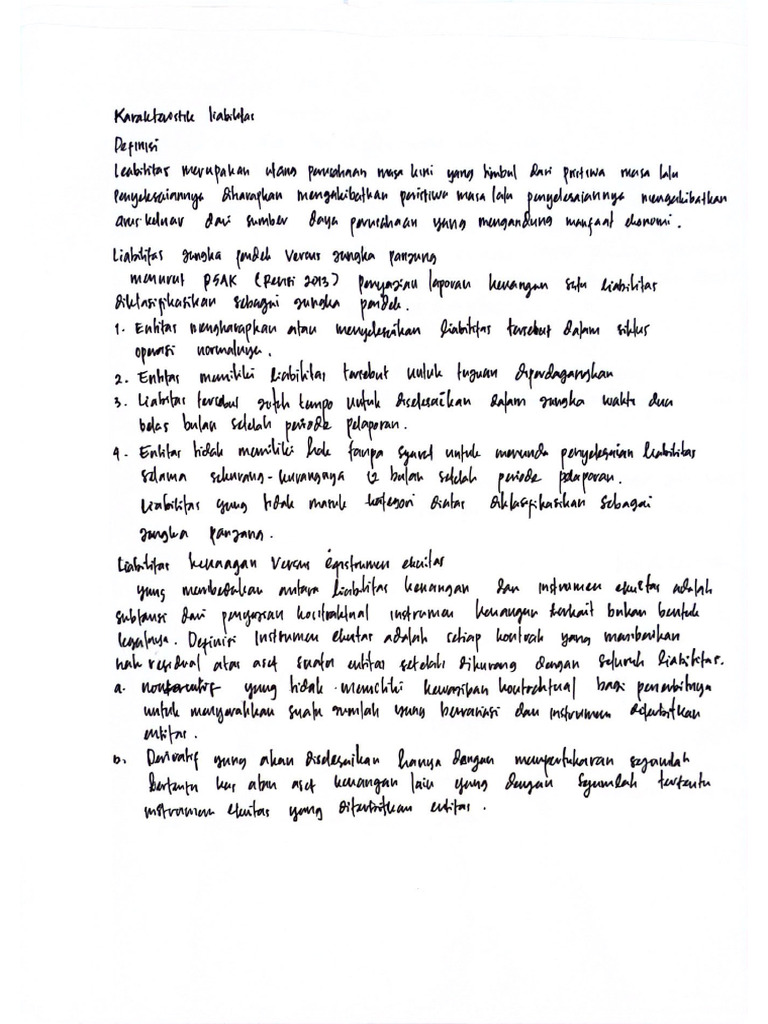 Karakteristik liabilitas
Definisi
Leabilitas merupakan utang perusahaan masa kini yang timbul dari pristiwa masa lalu
Penyelesaiannya diharapkan mengakibatkan peristiwa masa lalu penyelesaiannya mengakibatkan
arus keluar dari sumber daya perusahaan yang mengandung manfaat ekonomi.
Liabilitas jangka pendek versus jangka panjang
menurut PSAK (Revisi 2013) penyajian laporan keuangan satu liabilitas
diklasifikasikan sebagai jangka pendek.
1. Entitas mengharapkan atau menyelesaikan liabilitas tersebut dalam siklus
operasi normalnya.
2. Entitas memiliki liabilitas tersebut untuk tujuan diperdagangkan
3. Liabilitas tersebut jatuh tempo untuk diselesaikan dalam jangka waktu dua
belas bulan setelah periode pelaporan.
4. Entitas tidak memiliki hak tanpa syarat untuk menunda penyelesaian liabilitas
selama sekurang-kurangnya 12 bulan setelah periode pelaporan.
Liabilitas yang tidak masuk kategori diatas diklasifikasikan sebagai
jangka panjang.
Liabilitas keuangan versus instrumen ekuitas
yang membedakan antara liabilitas keuangan dan instrumen ekuitas adalah
subtansi dari kontraktual instrumen keuangan terkait bukan bentuk
legalnya. Definisi Instrumen ekuitas adalah setiap kontrak yang memberikan
hak residual atas aset suatu entitas setelah dikurang dengan seluruh liabilitas.
a. yang tidak memiliki kewajiban kontraktual bagi penerbitnya
untuk menyerahkan suatu jumlah yang bervariasi dari instrumen diterbitkan
entitas.
b. Derivatif yang akan diselesaikan hanya dengan mempertukaran sejumlah
tertentu kas atau aset keuangan lain yang dengan sejumlah tertentu
instrumen ekuitas yang diterbitkan entitas.